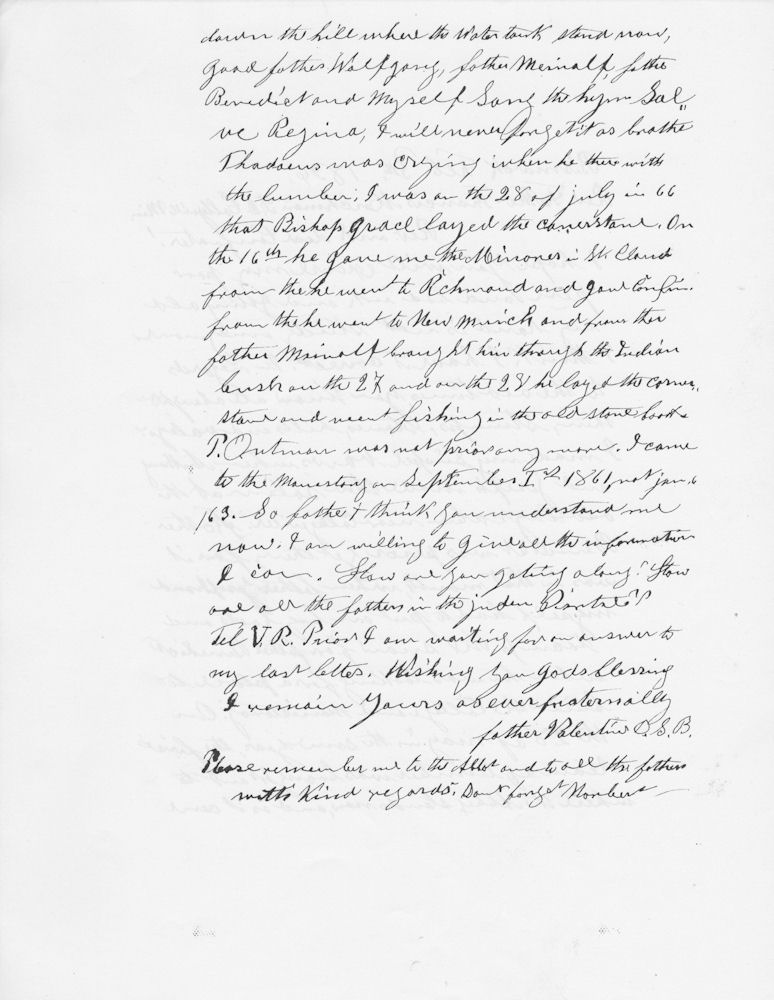 down the hill where the Water tank stand now,
good father Wolfgang, father Meinulf, father
Benedict and Myself Sang the hymn Sal„
ve Regina, I will never forget it as brothe
Thadaeus was Crying when he there with
the lumber; I was on the 28 of july in 66
that Bishop Grace layed the cornerstone. On
the 16th he gave me the Minores in St. Cloud
from the he went to Richmond and gave Confir.
from the he went to New Munich and from ther
father Meinulf brought him through the Indian
bush on the 27 and on the 28 he layed the corner„
stone and went fishing in the old stone boat.
P. was not prior any more. I came
to the Monastery on September 1st 1861, not jan. 6
/63. So father I think you understand me
now. I am willing to give all the information
I can. How are you geting along? How
are all the fathers in the
Tel V. R. Prior I am waiting for an answer to
my last letter. Wishing you Gods blessing
I remain Yours as ever fraternally
father Valentine O.S.B.
Please remember me to the Abbot and to all the fathers
with Kind regards. Dont forget Norbert —